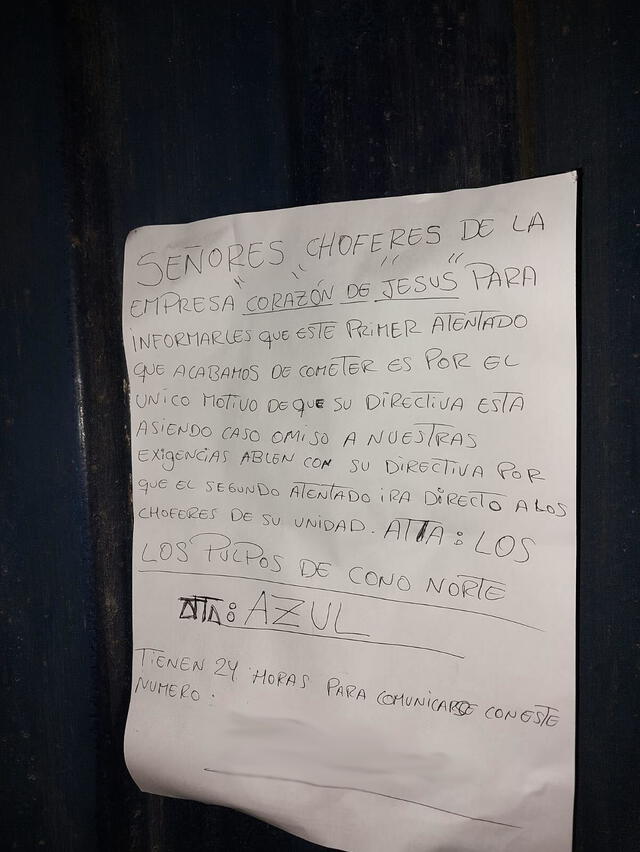 SEÑORES CHOFERES DE LA
EMPRESA "CORAZÓN DE "JESUS" PARA
INFORMARLES QUE ESTE PRIMER ATENTADO
QUE ACABAMOS DE COMETER ES POR EL
UNICO MOTIVO DE QUE SU DIRECTIVA ESTA
ASIENDO CASO OMISO A NUESTRAS
EXIGENCIAS ABLEN CON SU DIRECTIVA POR
QUE EL SEGUNDO ATENTADO IRA DIRECTO A LOS
CHOFERES DE SU UNIDAD. ATTA: LOS
LOS PULPOS DE CONO NORTE
ATTA: AZUL
TIENEN 24 HORAS PARA COMUNICARSE CON ESTE
NUMERO: